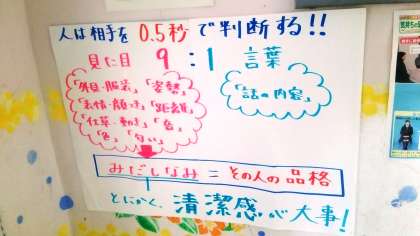 人は相手を 0.5秒で判断する!!
見た目 9:1 言葉
「外見・服装」「姿勢」
「表情・顔つき」「距離」
「仕草・動き」「音」
「色」「匂い」
「話の内容」
みだしなみ = その人の品格
とにかく、清潔感が大事!